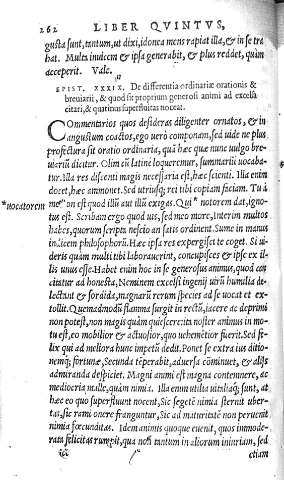 262 LIBER QVINTVS,
gusta sunt, tantum, ut dixi, idonea mens rapiat illa, & in se tra
hat. Multa inuicem & ipsa generabit, & plus reddet, quàm
acceperit. Vale.
EPIST. XXXIX. De differentia ordinariæ orationis &
breuiarii, & quod sit proprium generosi animi ad excelsa
citari, & quatinus superfluitas noceat.
COmmentarios quos desideras diligenter ornatos, & in
angustum coactos, ego uerò componam, sed uide ne plus
profectura sit oratio ordinaria, quā hæc quæ nunc uulgò bre-
uiariū dicitur. Olim cū latinè loqueremur, summariū uocaba-
tur. Illa res discenti magis necessaria est, hæc scienti. Illa enim
docet, hæc ammonet. Sed utriusq; rei tibi copiam faciam. Tu à
me * non est quòd illū aut illū exigas. Qui notorem dat, igno-
*nocatorem
tus est. Scribam ergo quod uis, sed meo more, Interim multos
habes, quorum scripta nescio an satis ordinent. Sume in manus
indicem philosophorū. Hæc ipsa res expergisci te coget. Si ui-
deris quàm multi tibi laborauerint, concupisces & ipse ex il-
lis unus esse. Habet enim hoc in se generosus animus, quod con
citatur ad honesta, Neminem excelsi ingenij uirū humilia de-
lectant & sordida, magnarū rerum species ad se uocat et ex-
tollit. Quemadmodū flamma surgit in rectū, iacere ac deprimi
non potest, non magis quàm quiescere: ita noster animus in mo-
tu est, eo mobilior & actuosior, quo uehementior fuerit. Sed fœ-
lix qui ad meliora hunc impetū dedit. Ponet se extra ius ditio-
nemq; fortunæ, Secunda tēperabit, aduersa cōminuet, & alijs
admiranda despiciet. Magni animi est magna contemnere, ac
mediocria malle, quàm nimia. Illa enim utilia uitaliaq; sunt, at
hæc eo quo superfluunt nocent, Sic segetē nimia sternit uber-
tas, sic rami onere franguntur, Sic ad maturitatē non peruenit
nimia fœcunditas. Idem animis quoque euenit, quos immode-
rata felicitas rumpit, qua non tantum in aliorum iniuriam, sed
etiam